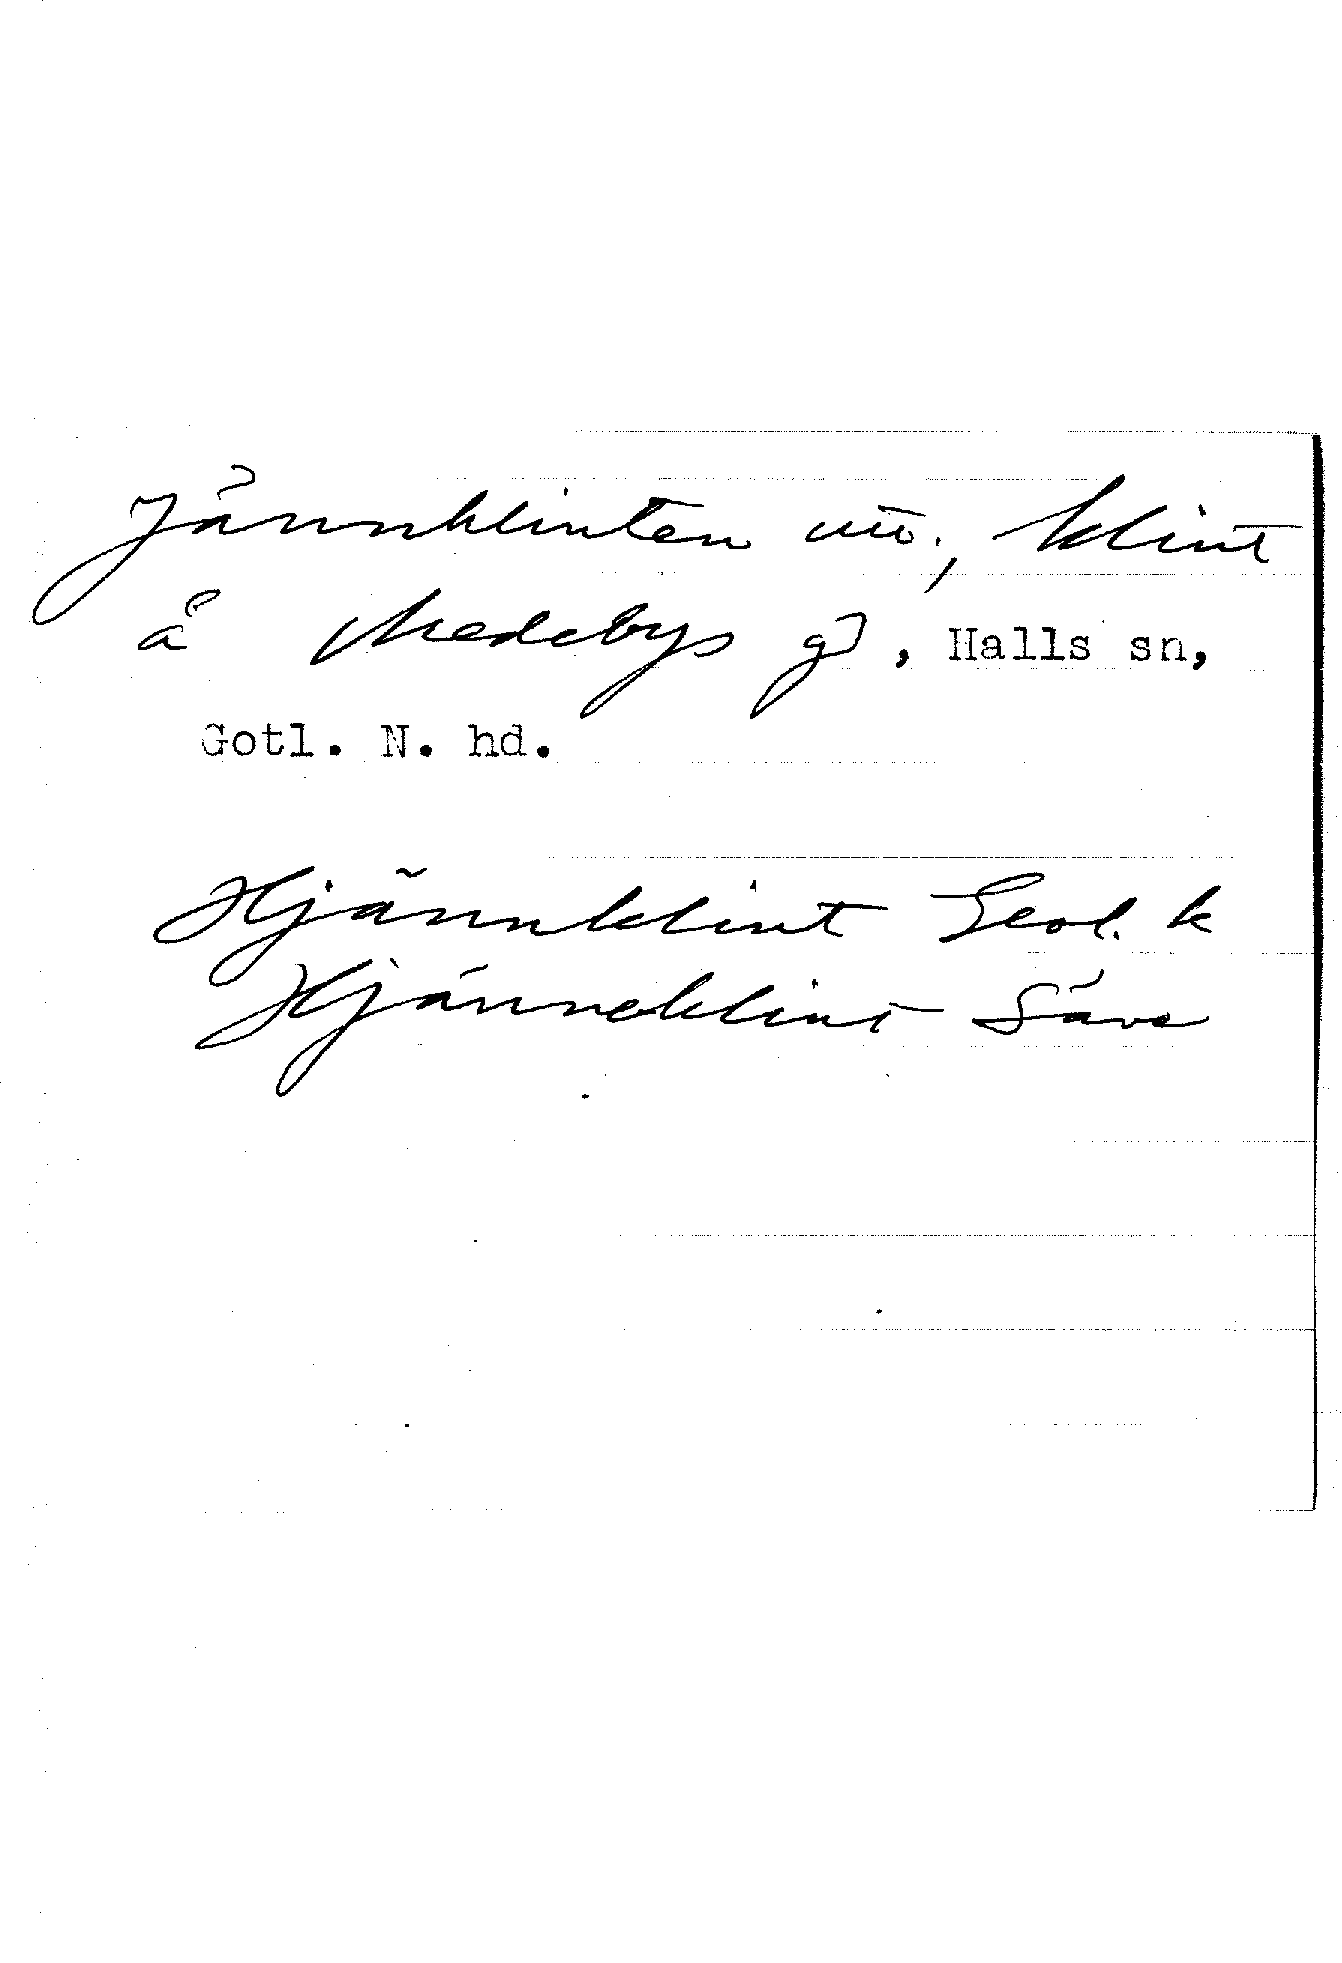 Jånnklinten uu., klint
å Medebys gd, Halls sn,
Gotl. N. hd.
Hjännklint Geol. k
Hjänneklint Säve